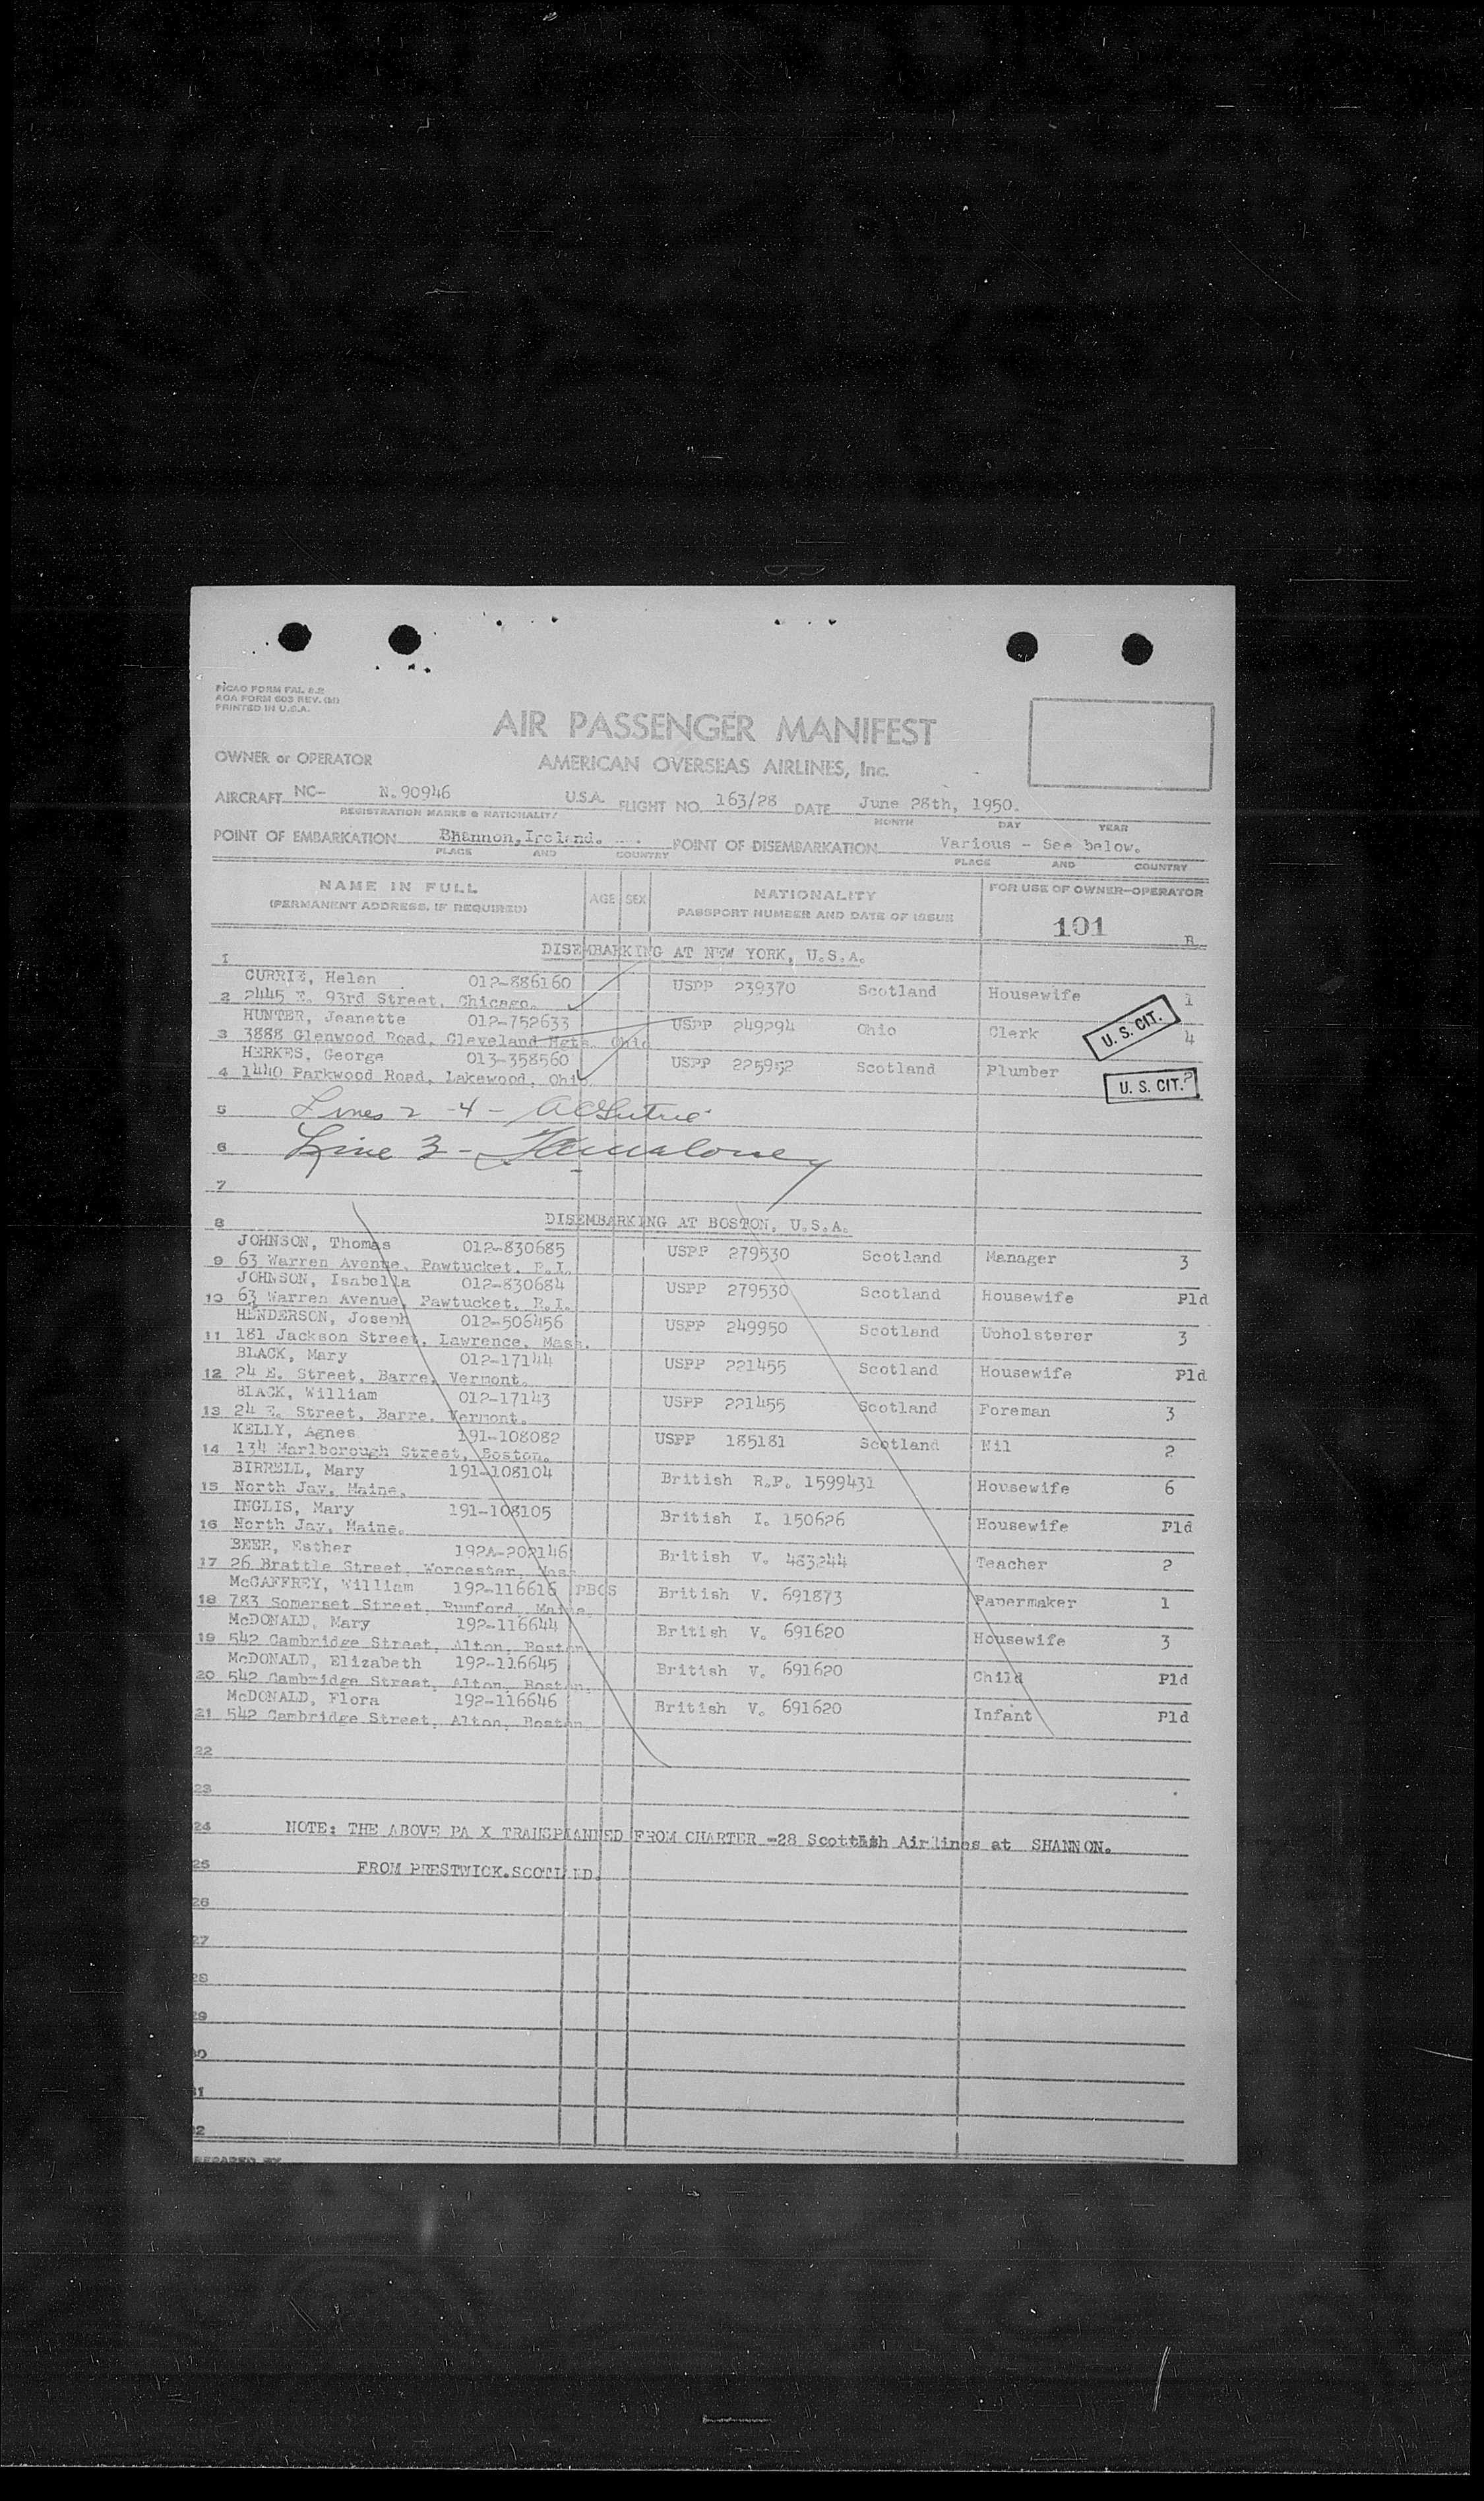 PICAO FORM FAL 2.2
AOA FORM 603 REV. (M)
PRINTED IN U.S.A.
AIR PASSENGER MANIFEST
OWNER or OPERATOR AMERICAN OVERSEAS AIRLINES, Inc.
AIRCRAFT NC- N.90946 U.S.A. FLIGHT NO. 163/28 DATE June 28th, 1950.
REGISTRATION MARKS & NATIONALITY MONTH DAY YEAR
POINT OF EMBARKATION Shannon, Ireland. POINT OF DISEMBARKATION Various - See below.
PLACE AND COUNTRY PLACE AND COUNTRY
NAME IN FULL AGE SEX NATIONALITY FOR USE OF OWNER-OPERATOR
(PERMANENT ADDRESS, IF REQUIRED) PASSPORT NUMBER AND DATE OF ISSUE
101 B
1 DISEMBARKING AT NEW YORK, U.S.A.
CURRIE, Helen 012-886160 USPP 239370 Scotland Housewife 1
2 2445 E. 93rd Street, Chicago.
HUNTER, Jeanette 012-752633 USPP 249294 Ohio Clerk U. S. CIT. 4
3 3888 Glenwood Road, Cleveland Hgts. Ohio
HERKES, George 013-358560 USPP 225952 Scotland Plumber
4 1440 Parkwood Road, Lakewood, Ohio. U. S. CIT.
5 Lines 2 - 4 -
6 Line 3 -
7
8 DISEMBARKING AT BOSTON, U.S.A.
JOHNSON, Thomas 012-830685 USPP 279530 Scotland Manager 3
9 63 Warren Avenue, Pawtucket, R.I.
JOHNSON, Isabella 012-830684 USPP 279530 Scotland Housewife Pld
10 63 Warren Avenue, Pawtucket, R.I.
HENDERSON, Joseph 012-506456 USPP 249950 Scotland Upholsterer 3
11 181 Jackson Street, Lawrence, Mass.
BLACK, Mary 012-17144 USPP 221455 Scotland Housewife Pld
12 24 E. Street, Barre, Vermont.
BLACK, William 012-17143 USPP 221455 Scotland Foreman 3
13 24 E. Street, Barre, Vermont.
KELLY, Agnes 191-108082 USPP 185181 Scotland Nil 2
14 134 Marlborough Street, Boston.
BIRRELL, Mary 191-108104 British R.P. 1599431 Housewife 6
15 North Jay, Maine.
INGLIS, Mary 191-108105 British I. 150626 Housewife Pld
16 North Jay, Maine.
BEER, Esther 192A-202146 British V. 483244 Teacher 2
17 26 Brattle Street, Worcester, Mass
McCAFFREY, William 192-116616 PBCS British V. 691873 Papermaker 1
18 783 Somerset Street, Rumford, Maine.
McDONALD, Mary 192-116644 British V. 691620 Housewife 3
19 542 Cambridge Street, Alton, Boston
McDONALD, Elizabeth 192-116645 British V. 691620 Child Pld
20 542 Cambridge Street, Alton, Boston.
McDONALD, Flora 192-116646 British V. 691620 Infant Pld
21 542 Cambridge Street, Alton, Boston
22
23
24 NOTE: THE ABOVE PA X TRANSPLANNED FROM CHARTER -28 Scottish Airlines at SHANNON.
25 FROM PRESTWICK.SCOTLAND.
26
27
28
29
30
31
32
PREPARED BY